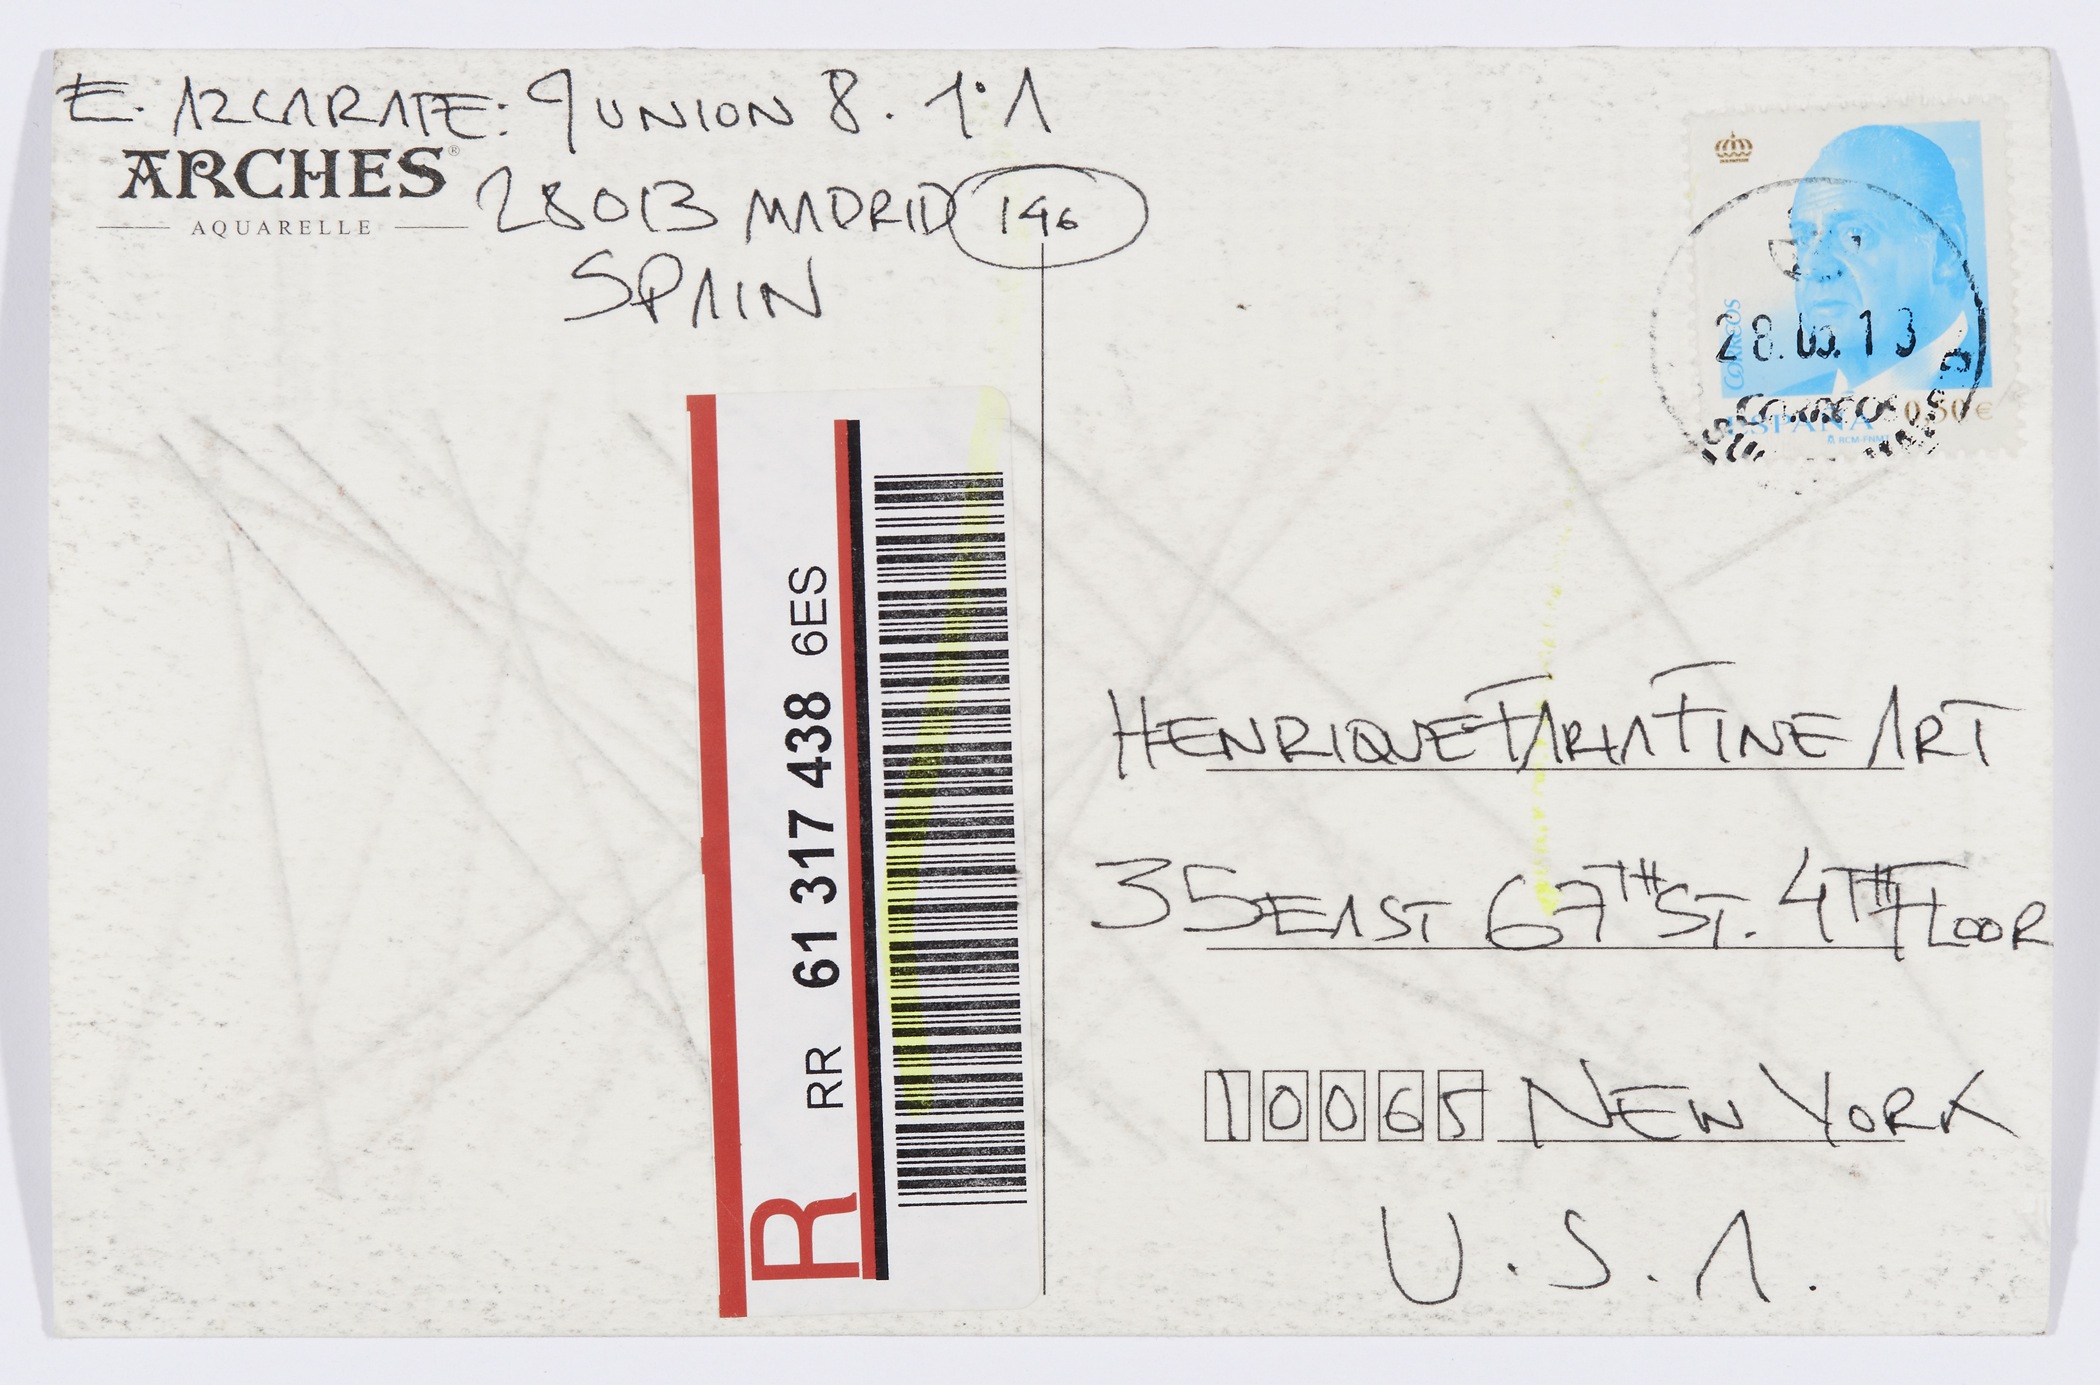 E. AZCARATE: 9 UNION 8. 1º A
ARCHES®
AQUARELLE
28013 MADRID 146
SPAIN
CORREOS
28.05.13
CORREOS
ESPAÑA 0,50€
RCM-FNMT
R RR 61 317 438 6ES
HENRIQUE FARIA FINE ART
35 EAST 67TH ST. 4TH FLOOR
10065 NEW YORK
U.S.A.